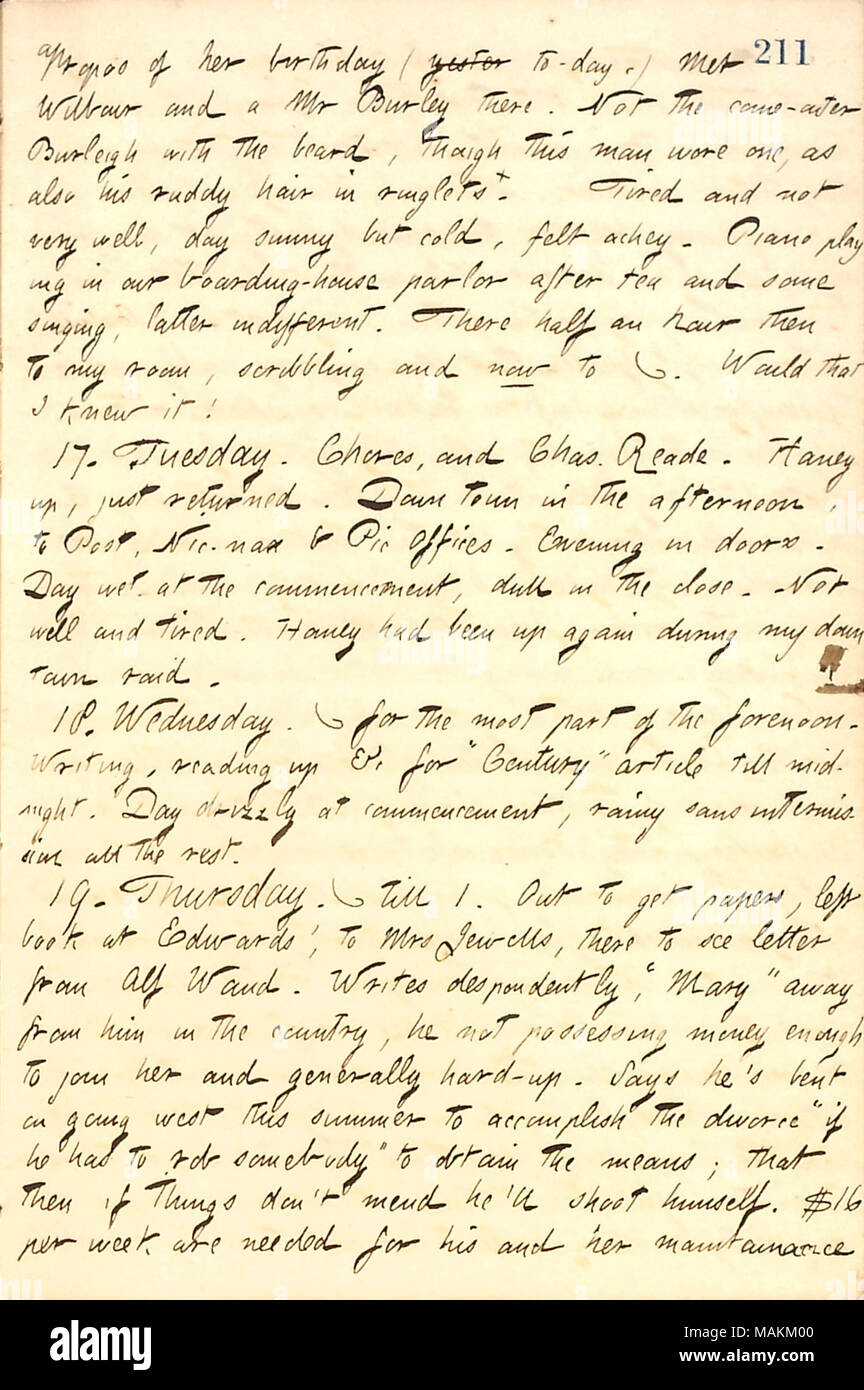 211
apropos of her birthday ( yester to-day.) Met
Wilbour and a Mr Burley there. Not the come-outer
Burleigh with the beard, though this man wore one, as
also his ruddy hair in ringlets+. Tired and not
very well, day sunny but cold, felt achey. Piano play
ing in our boarding-house parlor after tea and some
singing, latter indifferent. There half an hour then
to my room, scribbling and now to . Would that
I knew it!
17. Tuesday. Chores, and Chas. Reade. Haney
up, just returned. Down town in the afternoon,
to Post, Nic-nax & Pic Offices. Evening in doors.
Day wet at the commencement, dull in the close. Not
well and tired. Haney had been up again during my down
town raid.
18. Wednesday. for the most part of the forenoon.
Writing, reading up &c for "Century" article till mid-
night. Day drizzly at commencement, rainy sans intermis
sion all the rest.
19. Thursday. till 1. Out to get papers, left
book at Edwards', to Mrs Jewells, there to see letter
from Alf Waud. Writes despondently, "Mary" away
from him in the country, he not possessing money enough
to join her and generally hard-up. Says he's bent
on going west this summer to accomplish the divorce "if
he has to rob somebody" to obtain the means; that
then if things don't mend he'll shoot himself. $16
per week are needed for his and her maintainance
alamy
Image ID: MAKM00
www.alamy.com